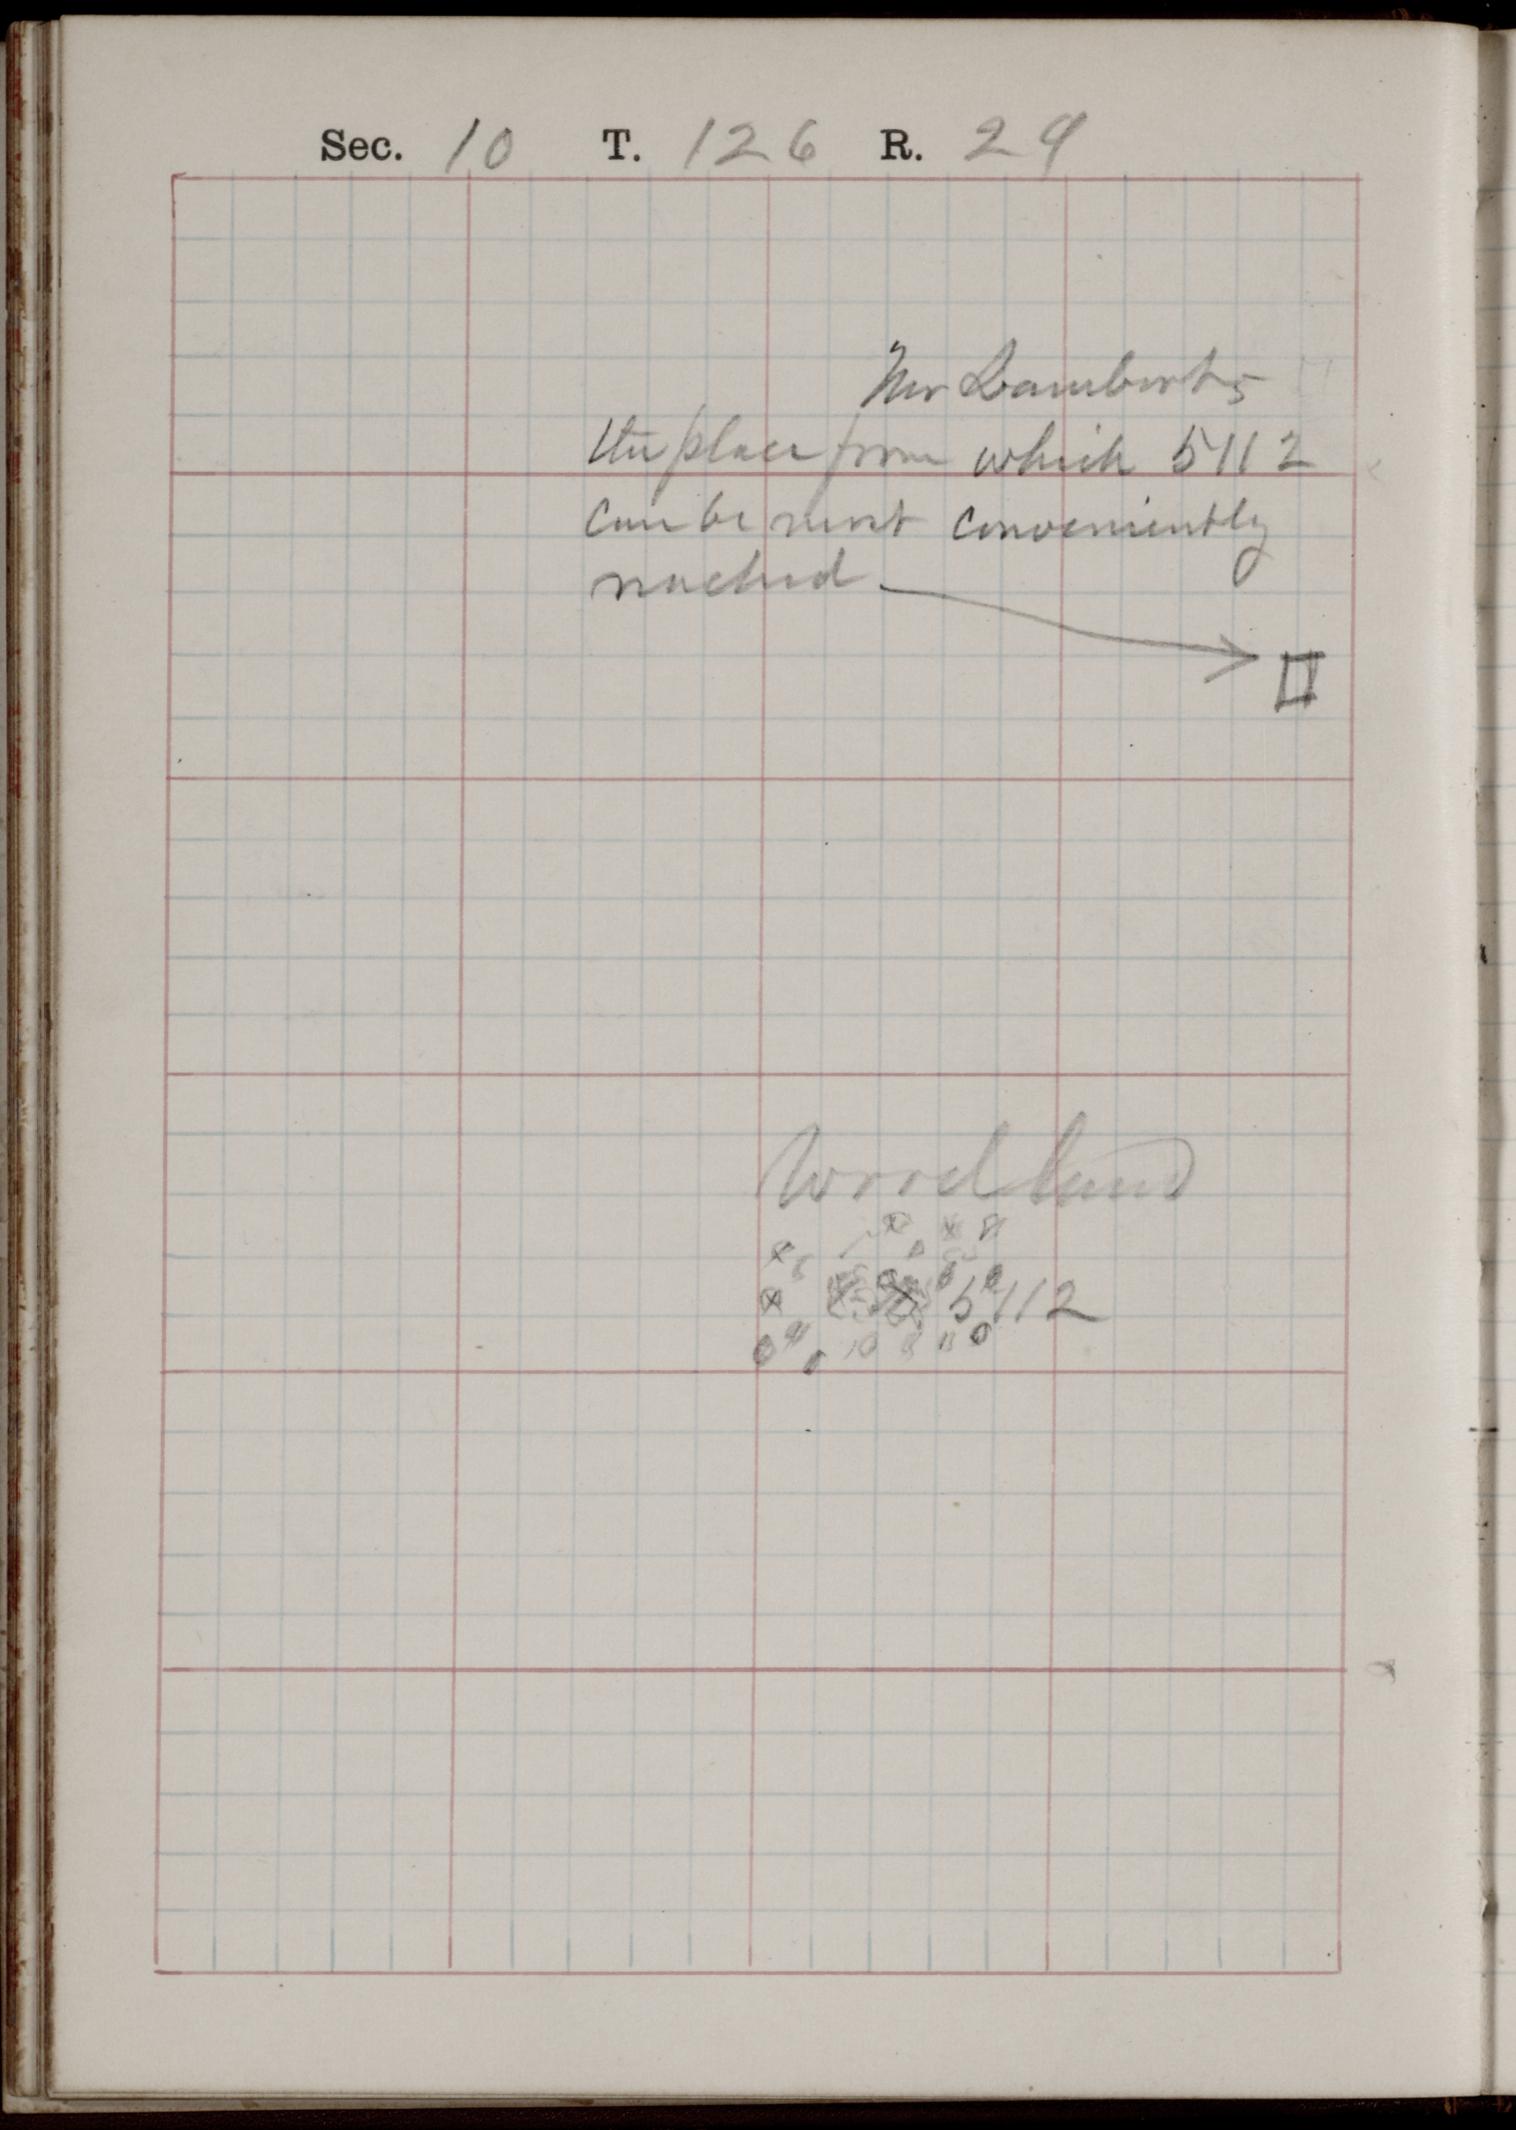 Sec. 10 T. 126 R. 29
Mr Lamberts
the place from which 5112
can be most conveniently
reached
Woodland
5112